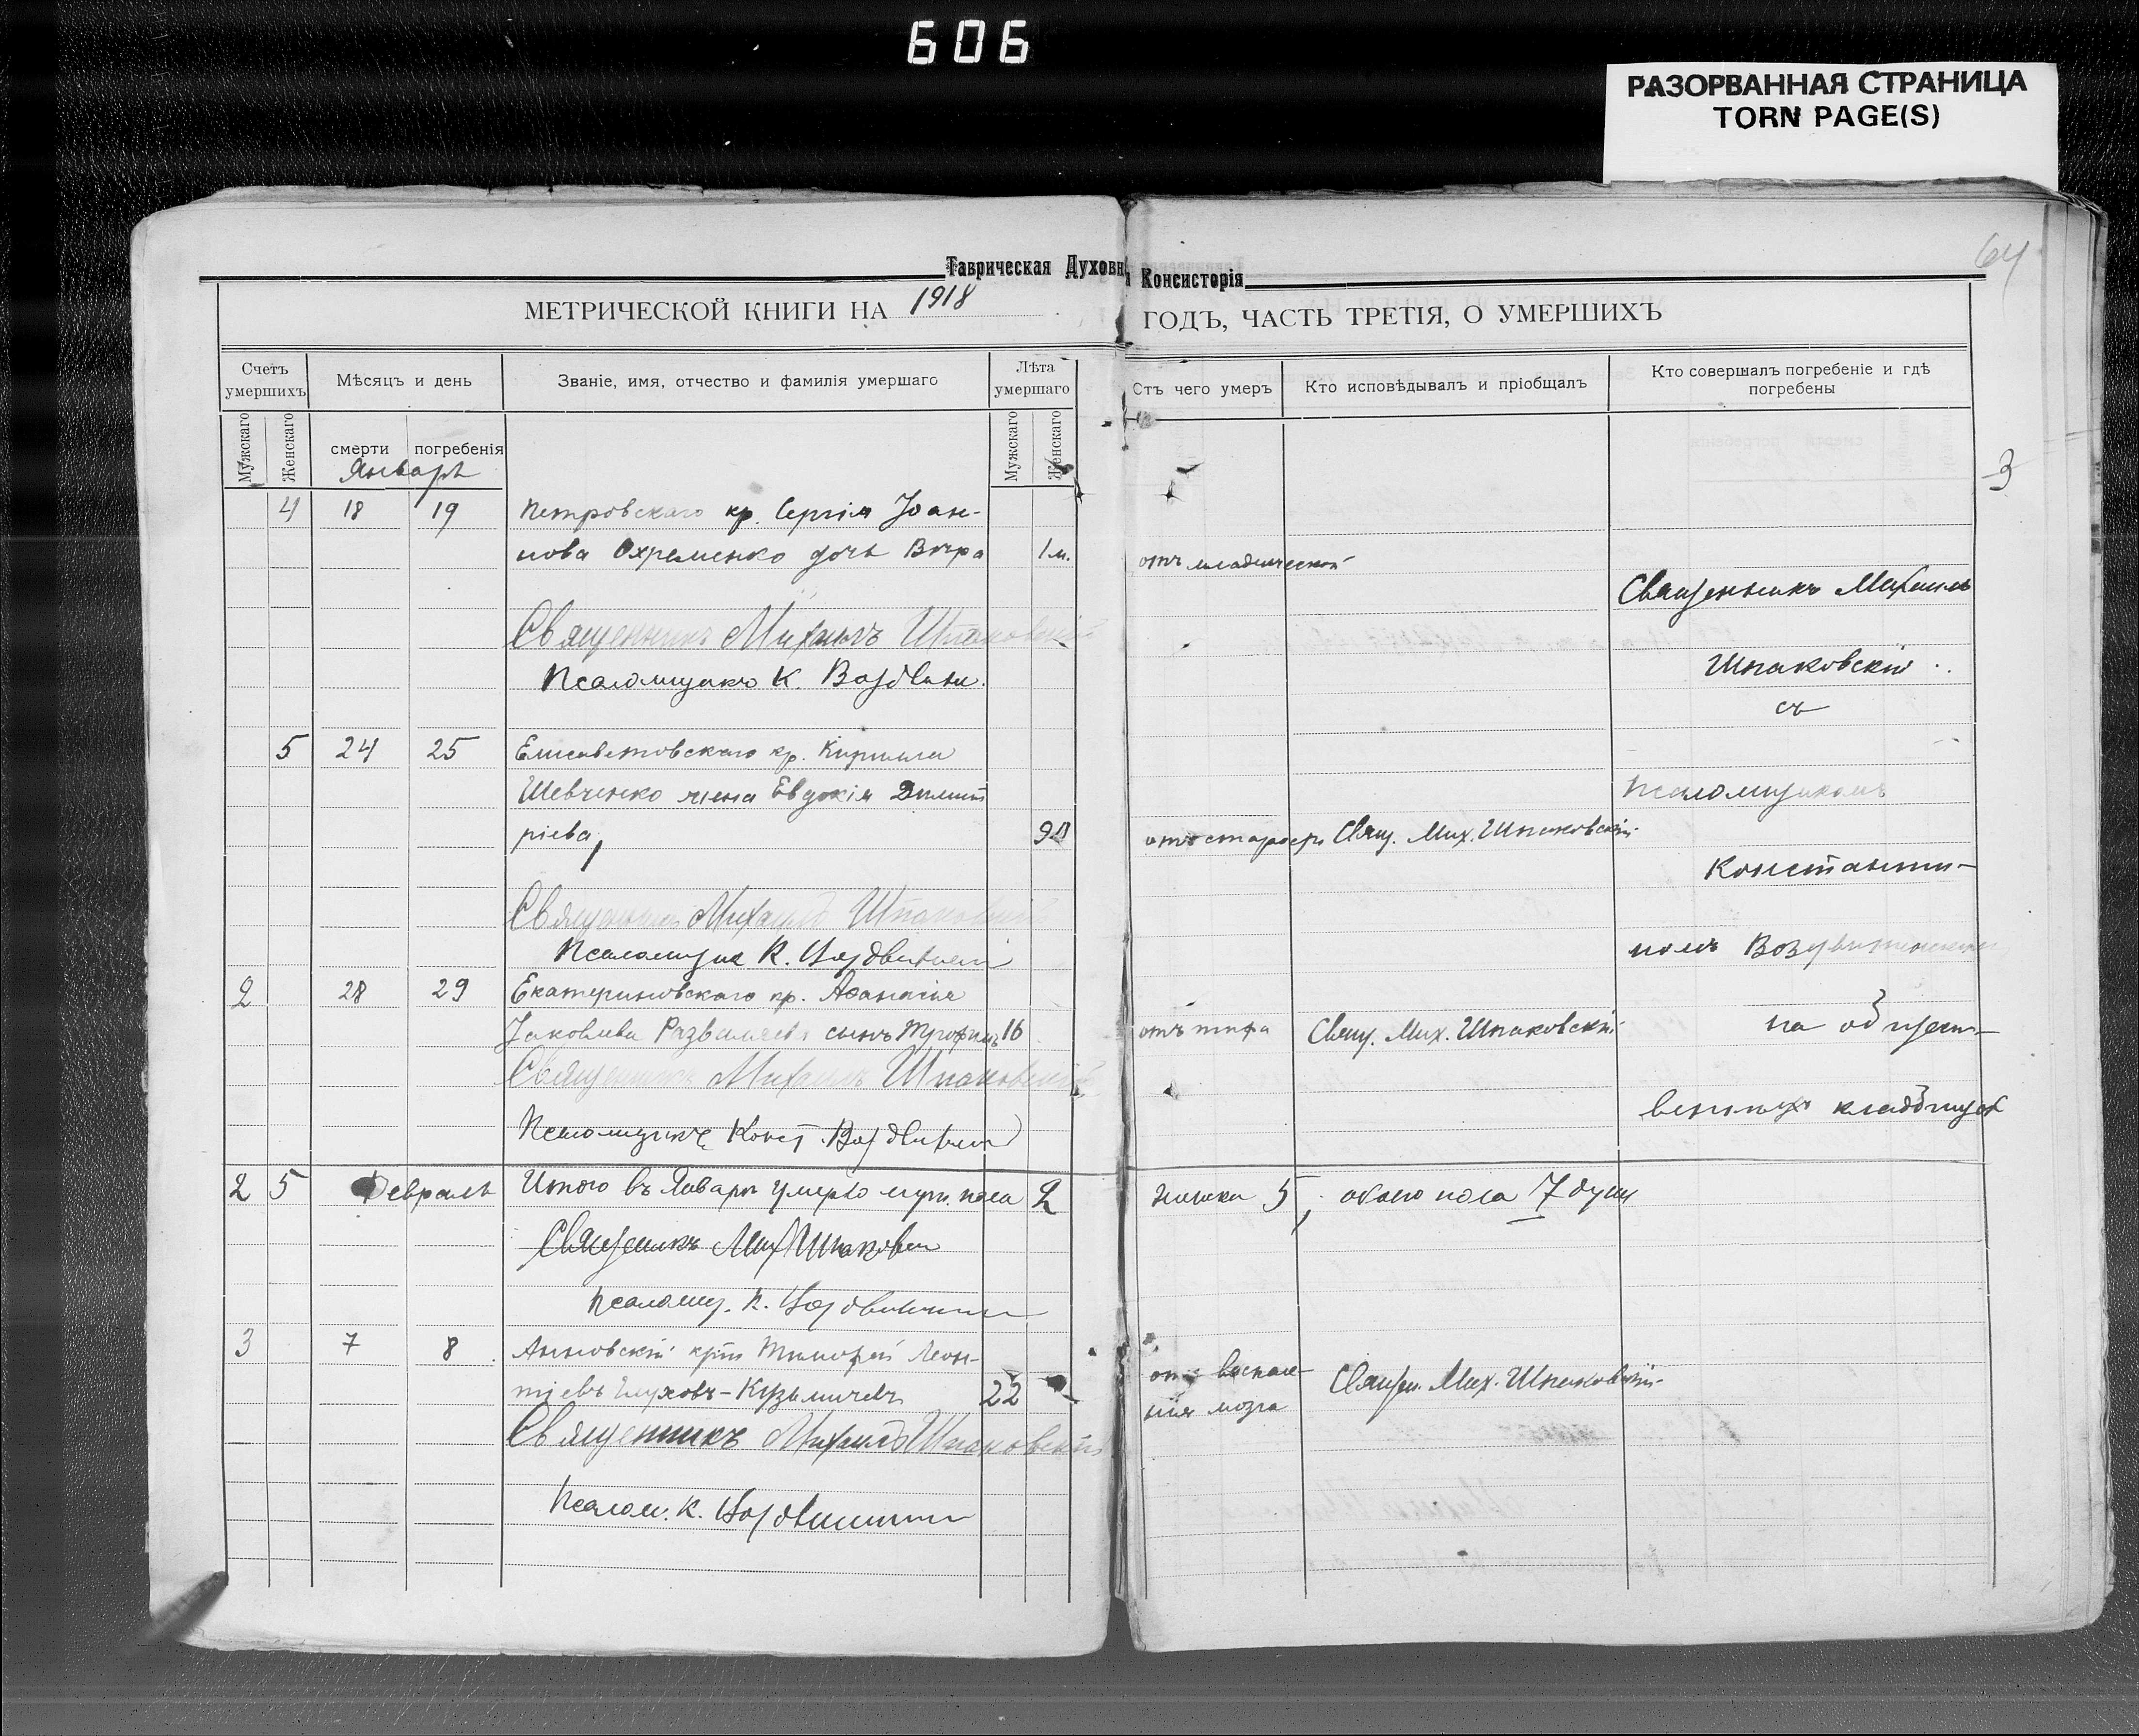 606
РАЗОРВАННАЯ СТРАНИЦА
TORN PAGE(S)
64
Таврическая Духовн Консисторія
МЕТРИЧЕСКОЙ КНИГИ НА 1918 ГОДЪ, ЧАСТЬ ТРЕТІЯ, О УМЕРШИХЪ
Счетъ умершихъ
Мѣсяцъ и день
Званіе, имя, отчество и фамилія умершаго
Лѣта умершаго
Отъ чего умеръ
Кто исповѣдывалъ и пріобщалъ
Кто совершалъ погребеніе и гдѣ погребены
Мужскаго Женскаго смерти погребенія Мужскаго Женскаго
Январь
3
4 18 19 Петровскаго кр. Сергія Іоан-
нова Охременко дочь Вѣра 1 м. отъ младенческой
Священникъ Михаилъ
Священникъ Михаилъ Шпаковскій
Шпаковскій
Псаломщикъ К.
съ
5 24 25 Елисаветовскаго кр. Кирилла
Шевченко жена Евдокія Димит
Псаломщикомъ
ріева, 90 отъ старости Свящ. Мих. Шпаковскій
Константи-
Священникъ Михаилъ Шпаковскій
Псаломщик К. Воздвиженскій
номъ Воздвиженскимъ
2 28 29 Екатериновскаго кр. Аѳанасія
Іаковлева сынъ Трофимъ 16 отъ тифа Свящ. Мих. Шпаковскій
на общест-
Священникъ Михаилъ Шпаковскій
венныхъ кладбищах
Псаломщикъ Конст. Воздвиженскій
2 5 Февраль Итого въ Январѣ умерло муж. пола 2 женска 5, обоего пола 7 душ
Священникъ Мих Шпаковскій
Псаломщ. К. Воздвиженскій
3 7 8 Анновскій крт Тимофей Леон-
тіевъ Глуховъ-Кузьмичевъ 22 отъ воспале-
нія мозга Священ. Мих. Шпаковскій
Священникъ Михаилъ Шпаковскій
Псалом. К. Воздвиженскій